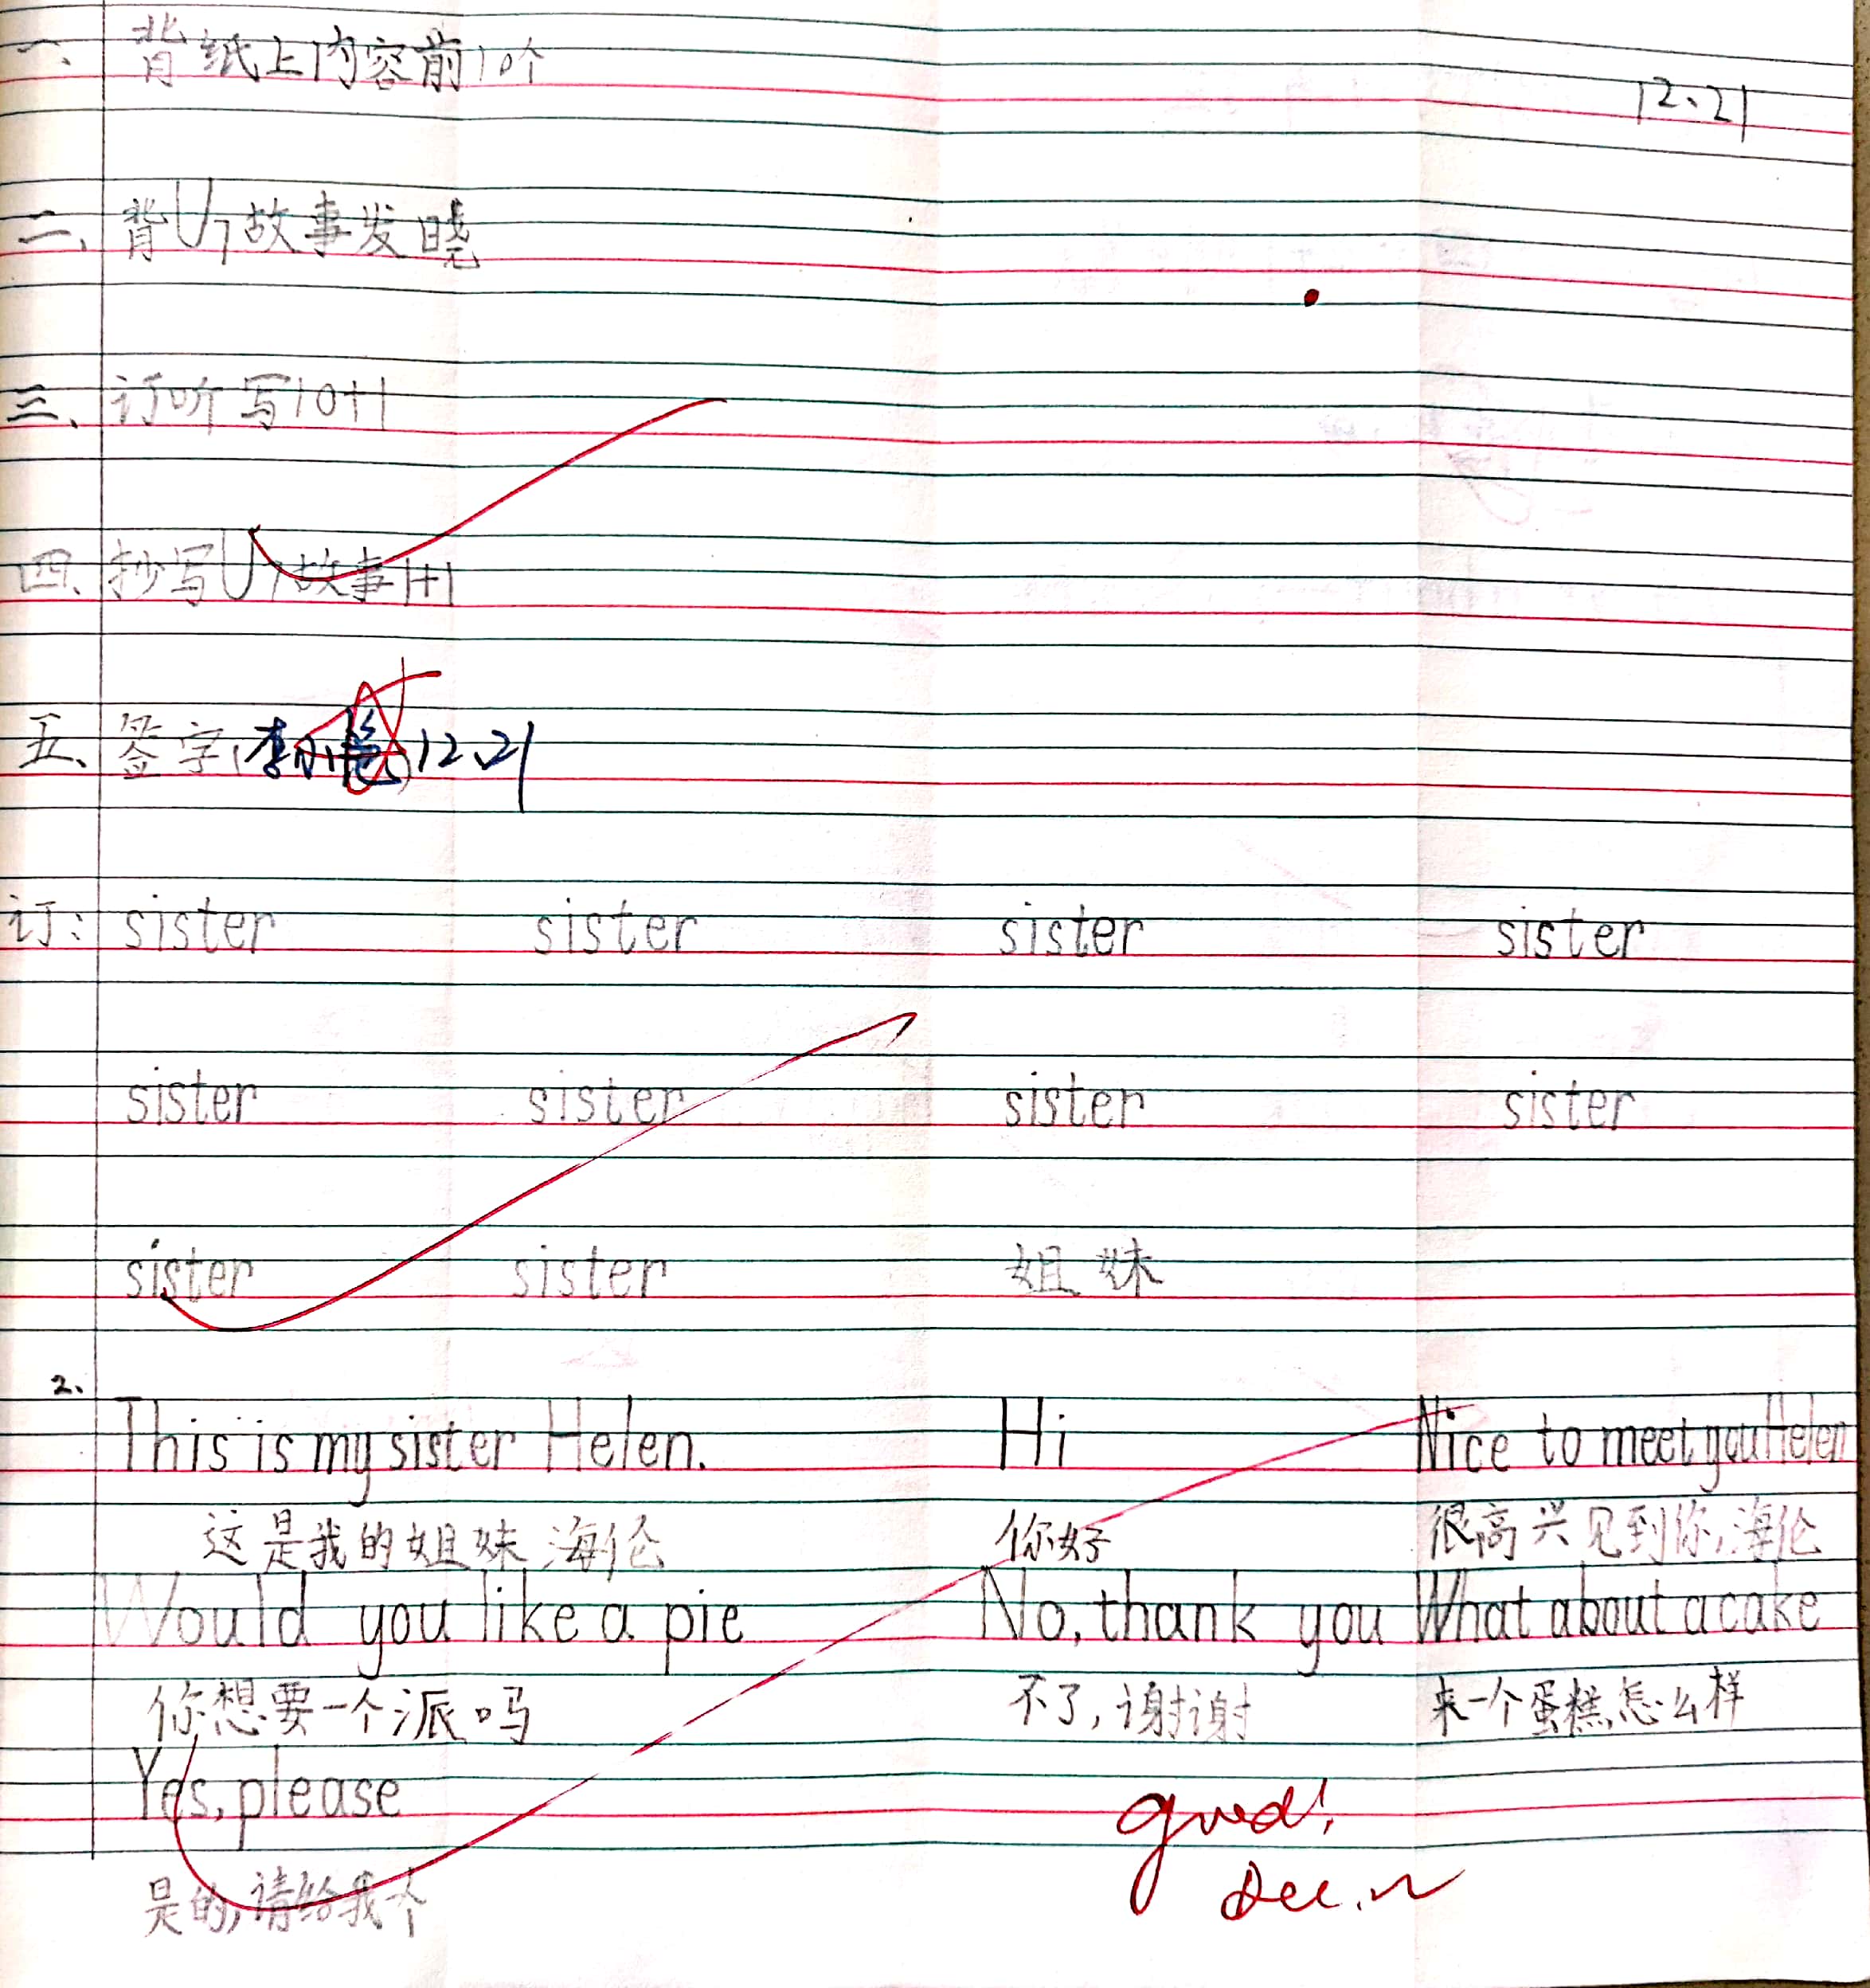 一、背纸上内容前10个
12、21
二、背U7故事发晓
三、订听写10+1
四、抄写U7故事1+1
五、签字(李小 12、21
订: sister sister sister sister
sister sister sister sister
sister sister 姐妹
2.
This is my sister Helen. Hi Nice to meet you Helen
这是我的姐妹海伦 你好 很高兴见到你,海伦
Would you like a pie No, thank you What about a cake
你想要一个派吗 不了,谢谢 来一个蛋糕怎么样
Yes, please
是的,请给我个
good!
Dec.